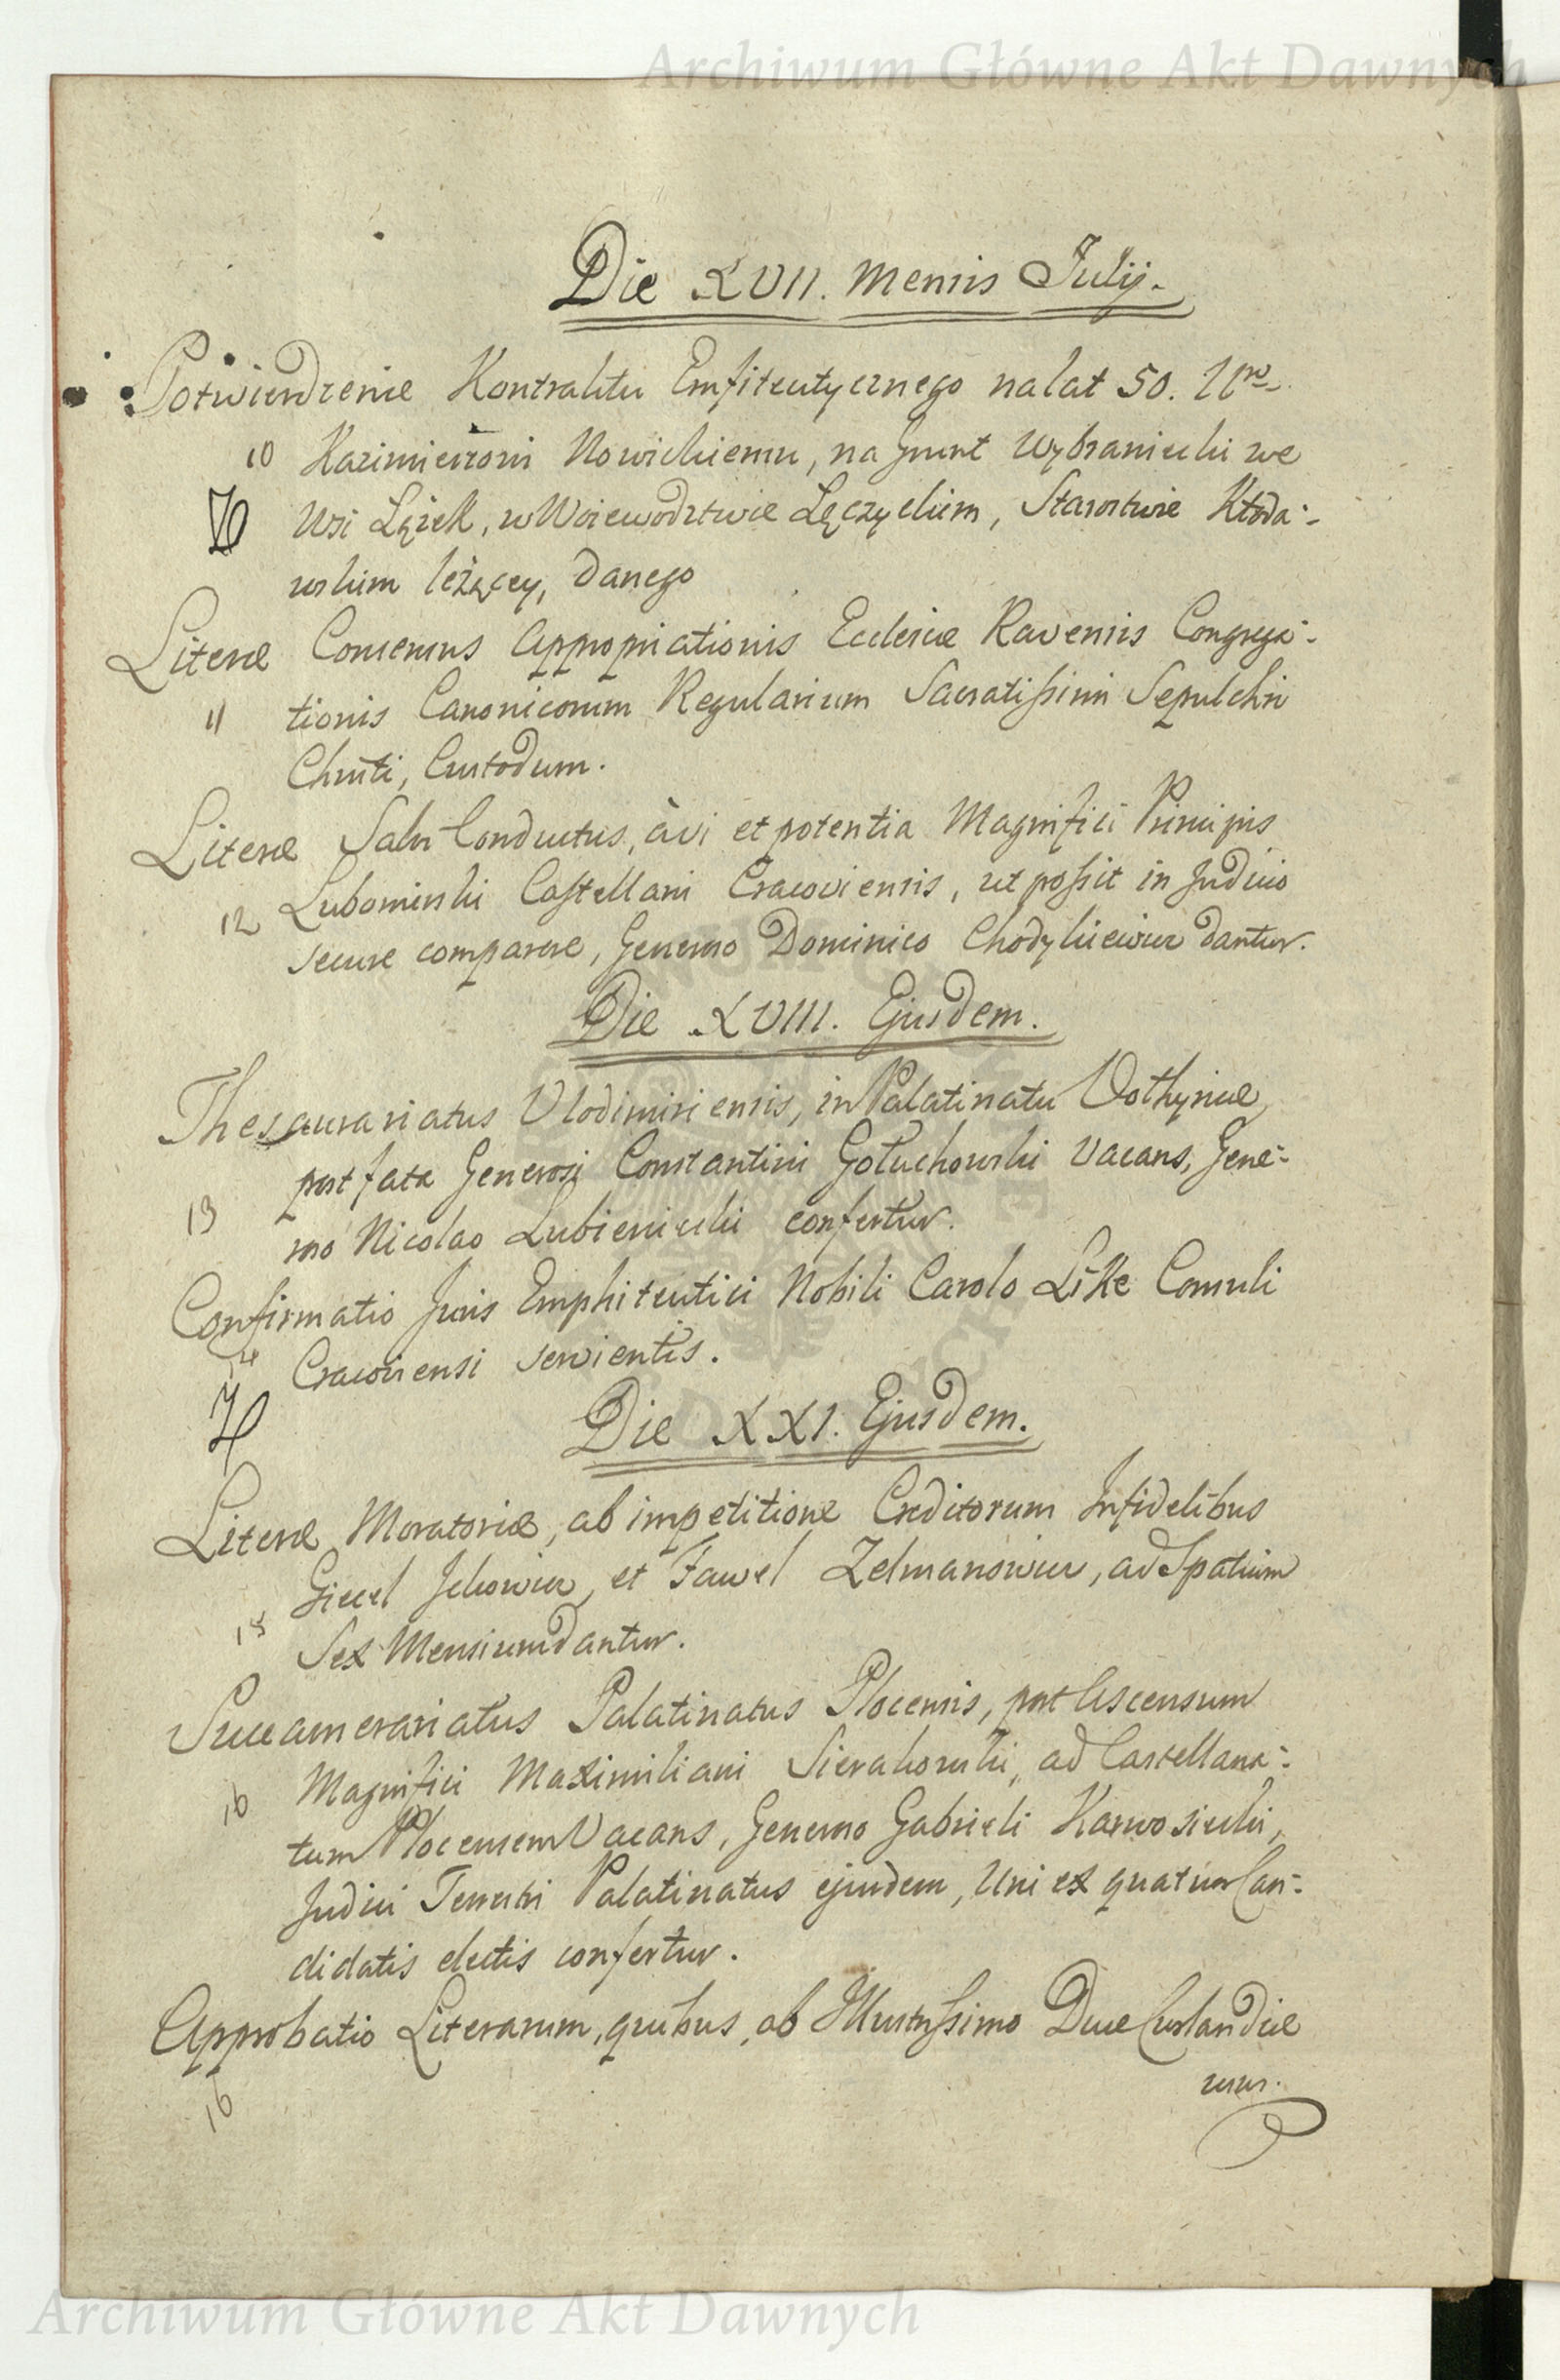 Archiwum Główne Akt Dawnych
Die XVII. Mensis Julij.
Potwierdzenie Kontraktu Emfiteutycznego na lat 50. Uro
10 Kazimierzowi Nowickiemu, na Grunt Wybraniecki we
Wsi Lężek, w Woiewodztwie Łęczyckim, Starostwie Kłoda-
wskim leżącey, danego
Literæ Consensus Appropriationis Ecclesiæ Ravensis Congrega-
11 tionis Canonicorum Regularium Sacratissimi Sepulchri
Christi, Custodum.
Literæ Salvi Conductus, à vi et potentia Magnifici Principis
12 Lubomirski Castellani Cracoviensis, ut possit in Judicio
secure comparere, Generoso Dominico Chodykiewicz dantur.
Die XVIII. Ejusdem.
Thesaurariatus Vlodimiriensis, in Palatinatu Volhyniæ,
post fata Generosi Constantini Gołuchowski vacans, Gene-
13 roso Nicolao Lubieniecki confertur.
Confirmatio Juris Emphiteutici Nobili Carolo Like Consuli
14 Cracoviensi servientis.
Die XXI. Ejusdem.
Literæ Moratoriæ, ab impetitione Creditorum Infidelibus
Giecel Ickowicz, et Fawel Zelmanowicz, ad Spatium
15 Sex Mensium dantur.
Succamerariatus Palatinatus Plocensis, post Ascensum
16 Magnifici Maximiliani Sierakowski, ad Castellana-
tum Plocensem Vacans, Generoso Gabrieli Karwosiecki,
Judici Terrestri Palatinatus ejusdem, Uni ex quatuor Can-
didatis electis confertur.
Approbatio Literarum, quibus, ab Illustrissimo Duce Curlandiæ
16
Archiwum Główne Akt Dawnych